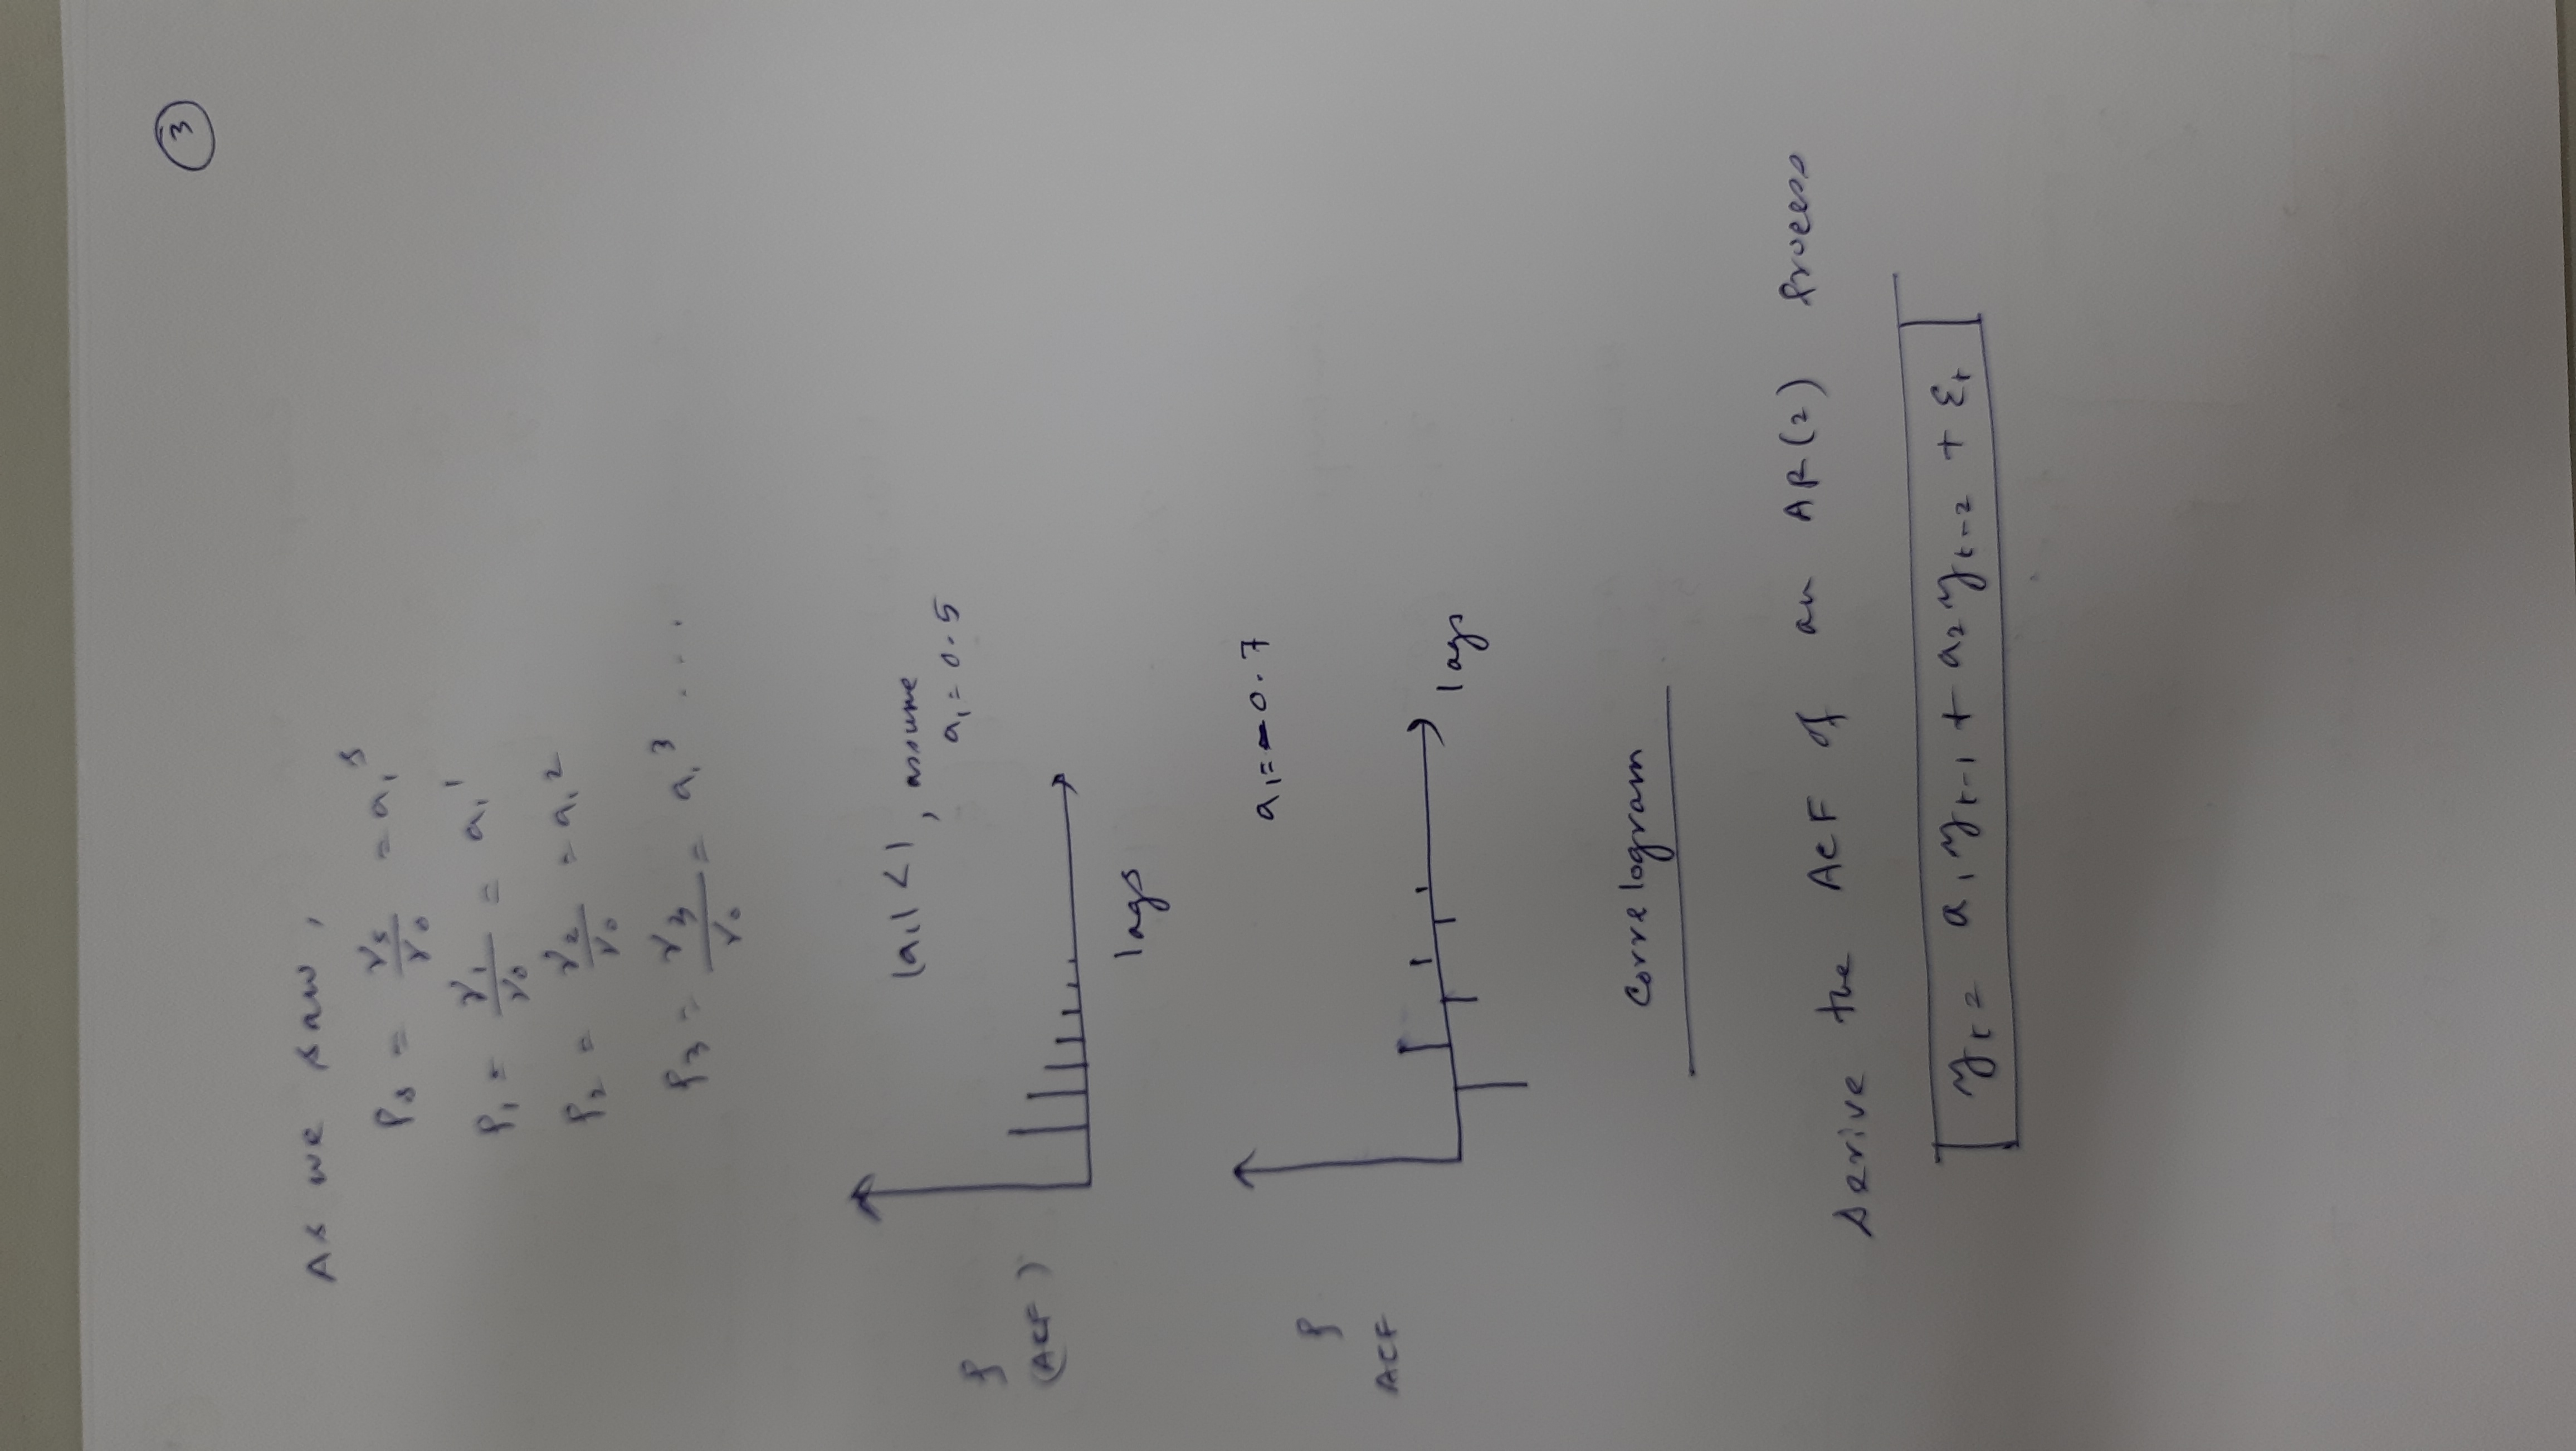 3
As we saw,
ρs = γs/γ0 = a₁ˢ
ρ₁ = γ₁/γ0 = a₁¹
ρ₂ = γ₂/γ0 = a₁²
ρ₃ = γ₃/γ0 = a₁³ ...
|a₁| < 1, assume
a₁ = 0.5
ρ
(ACF)
lags
a₁ = -0.7
ρ
ACF
lags
Correlogram
Derive the ACF of an AR(2) Process
yt = a₁yt-1 + a₂yt-2 + εt